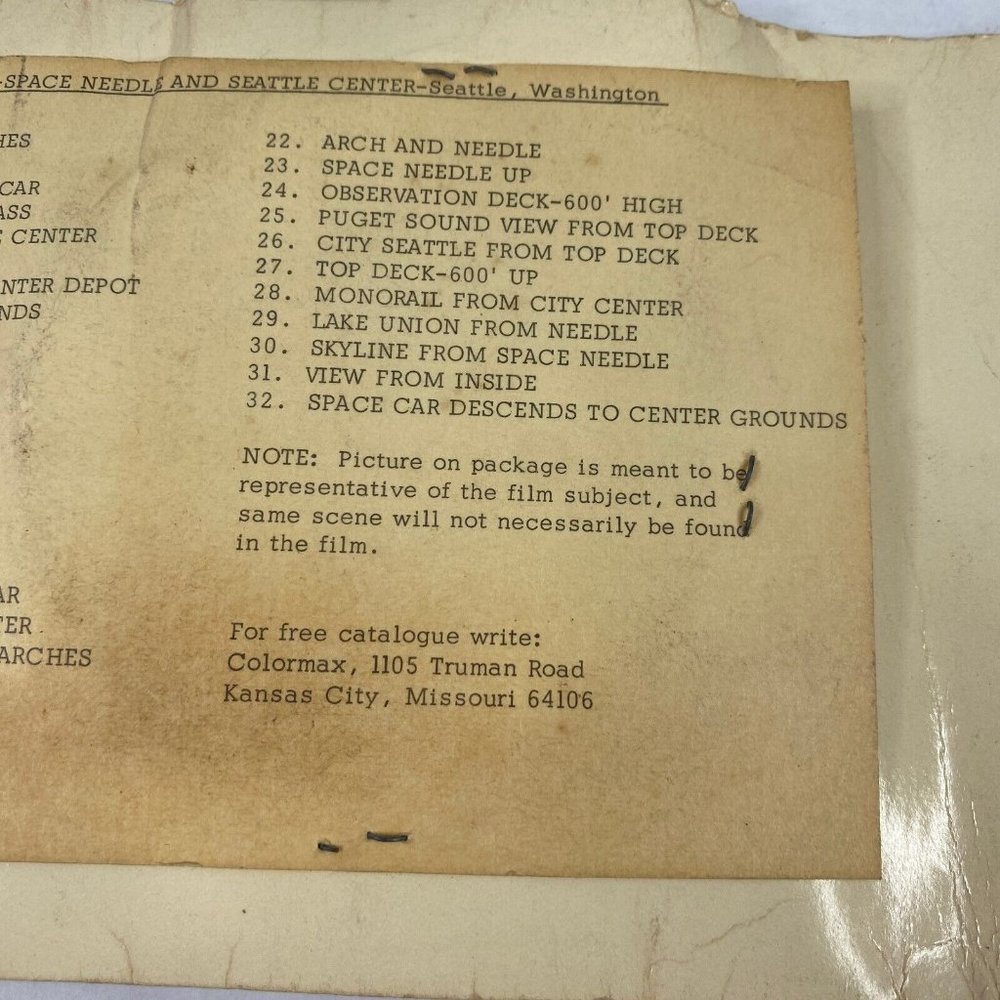 -SPACE NEEDLE AND SEATTLE CENTER-Seattle, Washington
HES
CAR
ASS
E CENTER
NTER DEPOT
NDS
AR
TER
ARCHES
22. ARCH AND NEEDLE
23. SPACE NEEDLE UP
24. OBSERVATION DECK-600' HIGH
25. PUGET SOUND VIEW FROM TOP DECK
26. CITY SEATTLE FROM TOP DECK
27. TOP DECK-600' UP
28. MONORAIL FROM CITY CENTER
29. LAKE UNION FROM NEEDLE
30. SKYLINE FROM SPACE NEEDLE
31. VIEW FROM INSIDE
32. SPACE CAR DESCENDS TO CENTER GROUNDS
NOTE: Picture on package is meant to be
representative of the film subject, and
same scene will not necessarily be found
in the film.
For free catalogue write:
Colormax, 1105 Truman Road
Kansas City, Missouri 64106